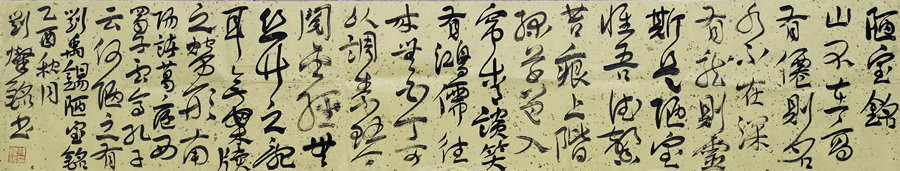 陋室銘
山不在高
有僊則名
水不在深
有龍則靈
斯是陋室
惟吾德馨
苔痕上階
綠草色入
帘青談笑
有鴻儒往
來無白丁可
以調素琴
閱金經無
丝竹之乱
耳無案牘
之勞形南
陽諸葛廬西
蜀子云亭孔子
云何陋之有
劉禹錫陋室銘
乙酉秋月
劉燦銘书